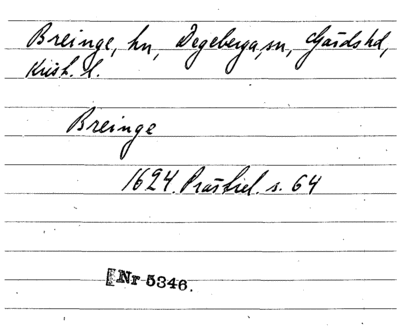 Breinge, hn, Degeberga, sn, Gärds hd,
Krist. l.
Breinge
1624. Prästrel. s. 64
Nr 5346.